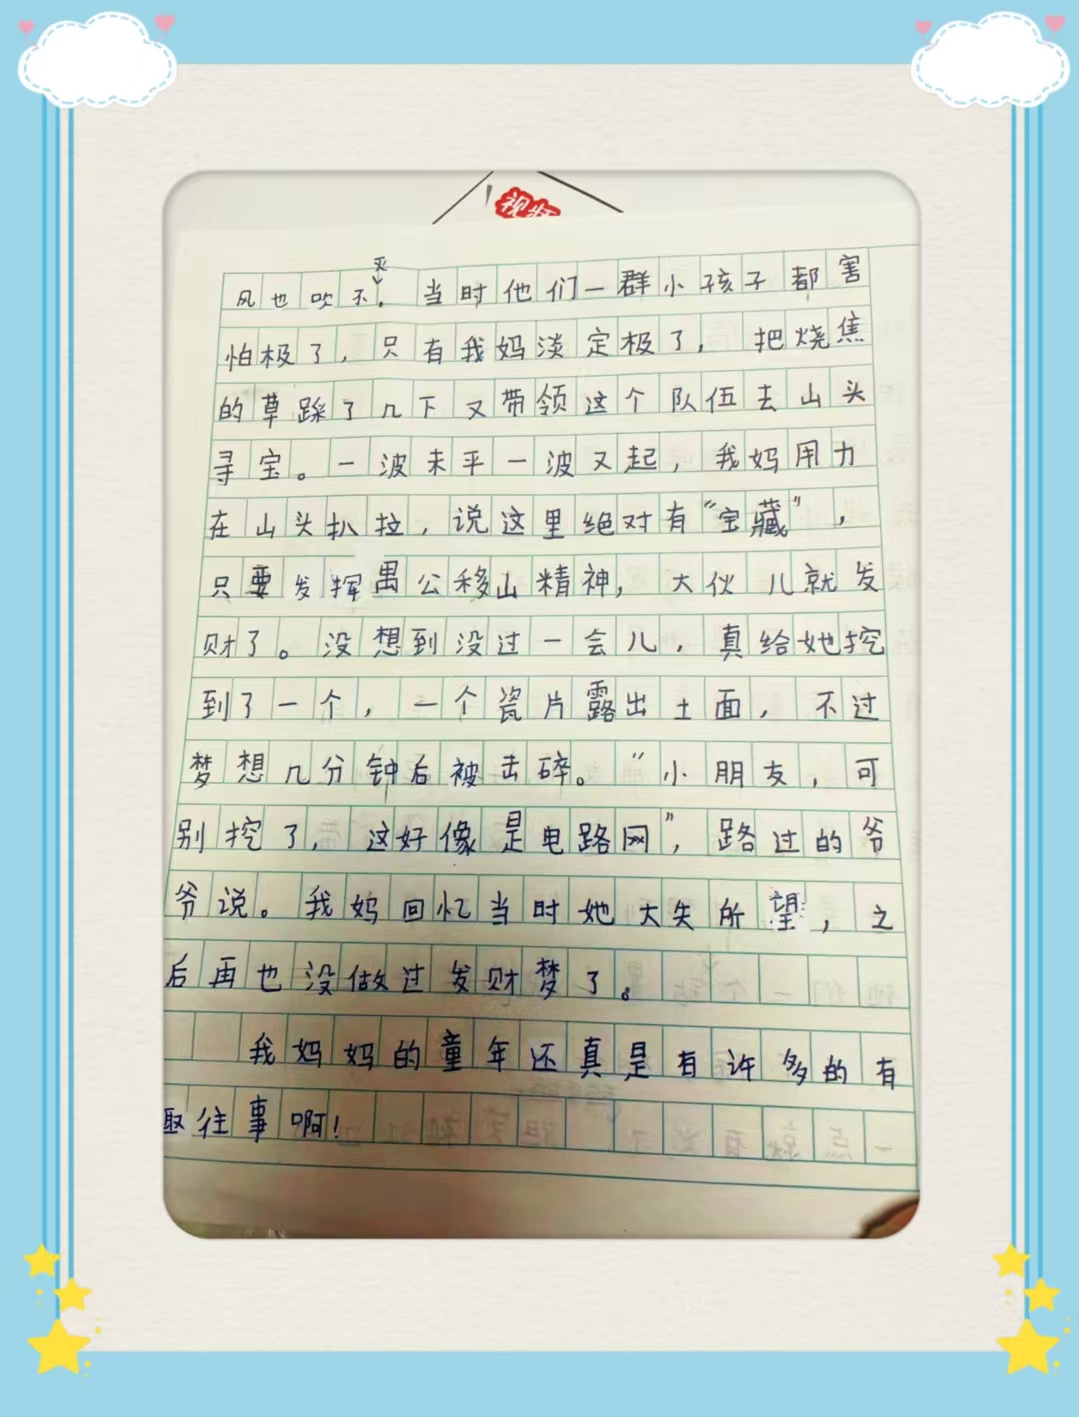 风也吹不灭。当时他们一群小孩子都害
怕极了，只有我妈淡定极了，把烧焦
的草踩了几下又带领这个队伍去山头
寻宝。一波未平一波又起，我妈用力
在山头扒拉，说这里绝对有“宝藏”，
只要发挥愚公移山精神，大伙儿就发
财了。没想到没过一会儿，真给她挖
到了一个，一个瓷片露出土面，不过
梦想几分钟后被击碎。“小朋友，可
别挖了，这好像是电路网”，路过的爷
爷说。我妈回忆当时她大失所望，之
后再也没做过发财梦了。
我妈妈的童年还真是有许多的有
取往事啊！